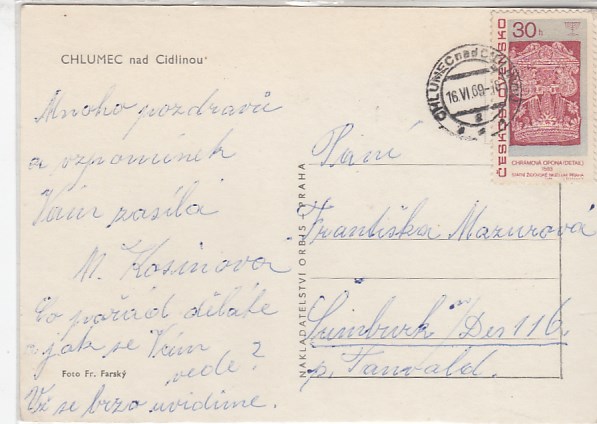 CHLUMEC nad Cidlinou
Mnoho pozdravů
a vzpomínek
Vám zasílá
M. Kosinova
Co pořád děláte
a jak se Vám
vede?
Už se brzo uvidíme.
Foto Fr. Farský
NAKLADATELSTVÍ ORBIS PRAHA
CHLUMEC nad
16.VI.69
30h
ČESKOSLOVENSKO
CHRÁMOVÁ OPONA (DETAIL)
STÁTNÍ ŽIDOVSKÉ MUZEUM PRAHA
Paní
Františka Mazurová
Šumburk n/Des 116
p. Tanvald.